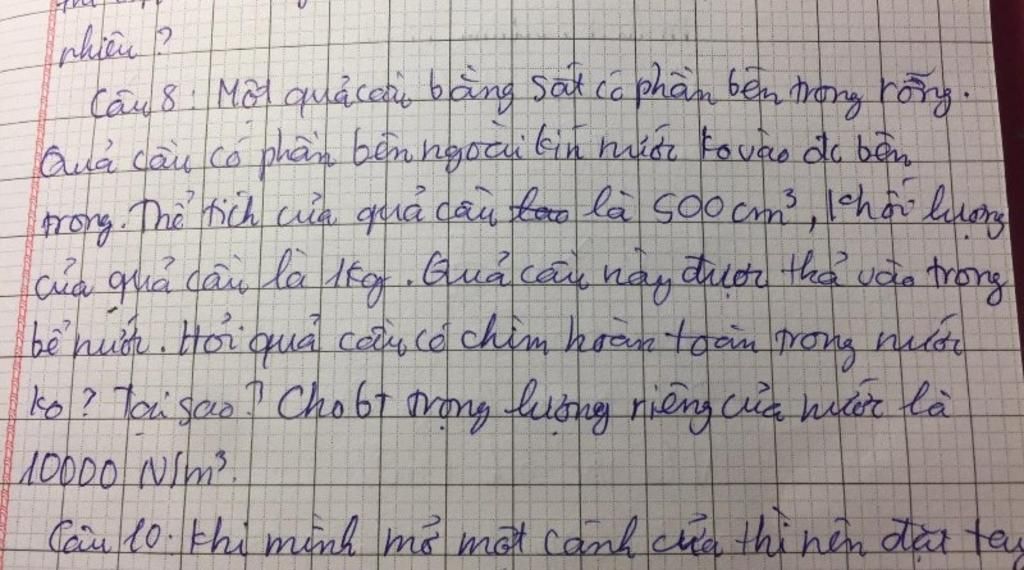 nhiêu?
Câu 8: Một quả cầu bằng sắt có phần bên trong rỗng.
Quả cầu có phần bên ngoài kín nước ko vào đc bên
trong. Thể tích của quả cầu là 500 cm³, khối lượng
của quả cầu là 1kg. Quả cầu này được thả vào trong
bể nước. Hỏi quả cầu có chìm hoàn toàn trong nước
ko? Tại sao? Cho bt trọng lượng riêng của nước là
10000 N/m³.
Câu 10: Khi mình mở một cánh cửa thì nên đặt tay